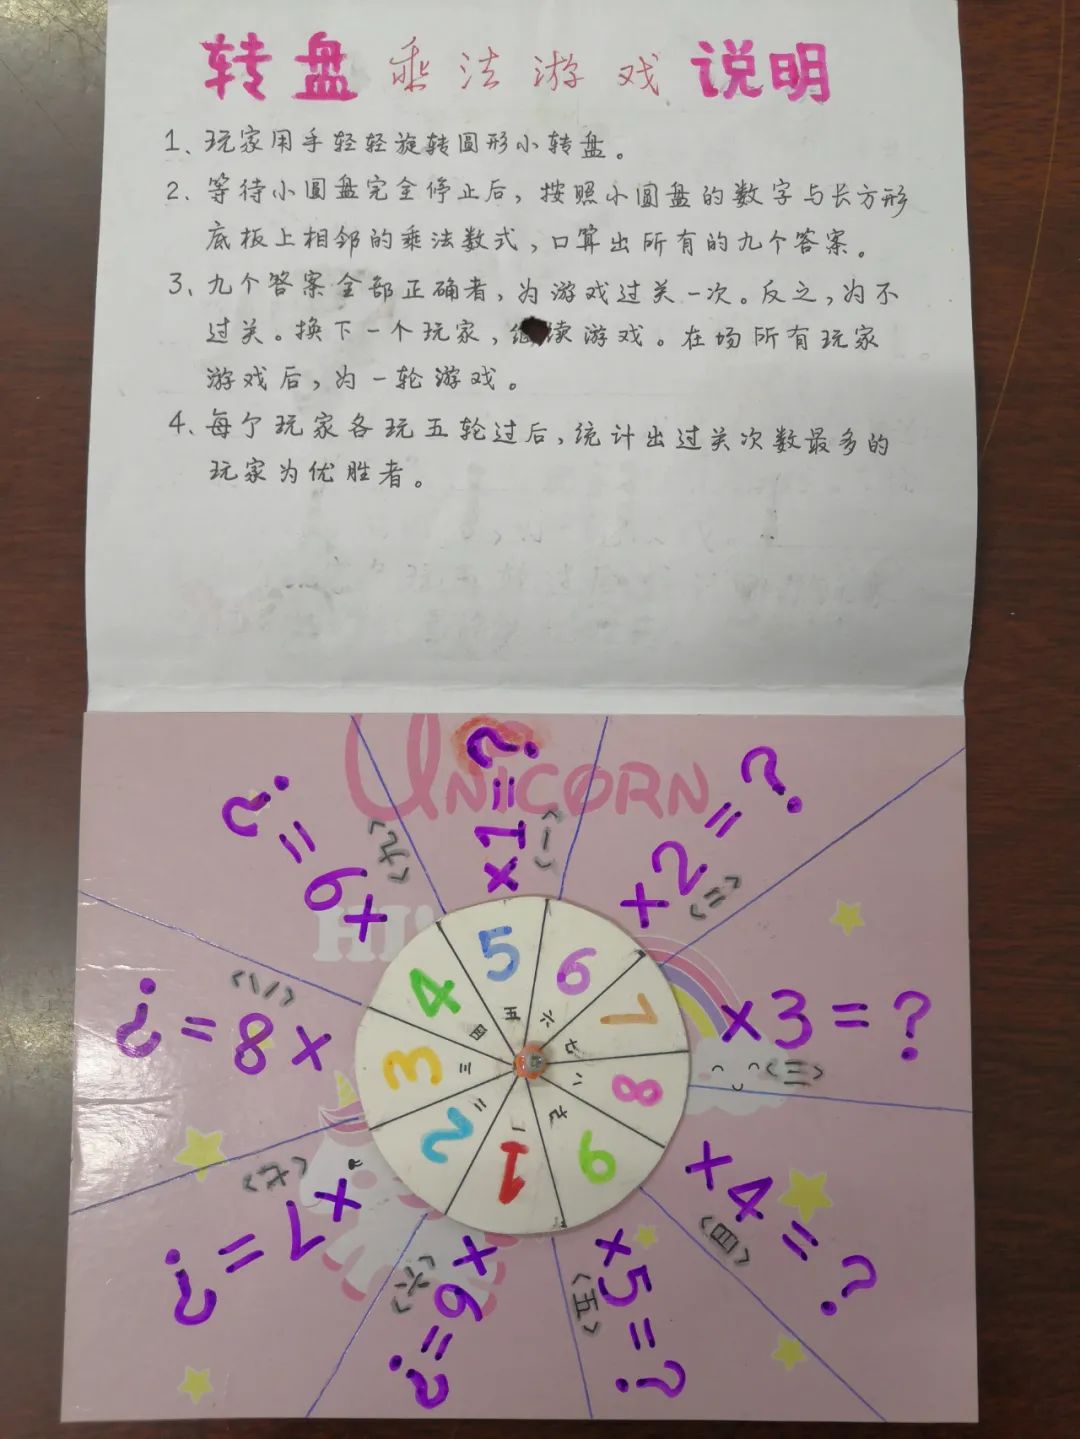 转盘乘法游戏说明
1、玩家用手轻轻旋转圆形小转盘。
2、等待小圆盘完全停止后，按照小圆盘的数字与长方形
底板上相邻的乘法数式，口算出所有的九个答案。
3、九个答案全部正确者，为游戏过关一次。反之，为不
过关。换下一个玩家，继续游戏。在场所有玩家
游戏后，为一轮游戏。
4、每个玩家各玩五轮过后，统计出过关次数最多的
玩家为优胜者。
UNICORN
HI
×1=?
(一)
×2=?
(二)
×3=?
(三)
×4=?
(四)
×5=?
(五)
×6=?
(六)
×7=?
(七)
×8=?
(八)
×9=?
(九)
5 五
6 六
7 七
8 八
9 九
1 一
2 二
3 三
4 四